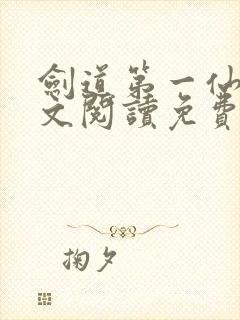 劍道第一仙
文閱讀免費
掬夕